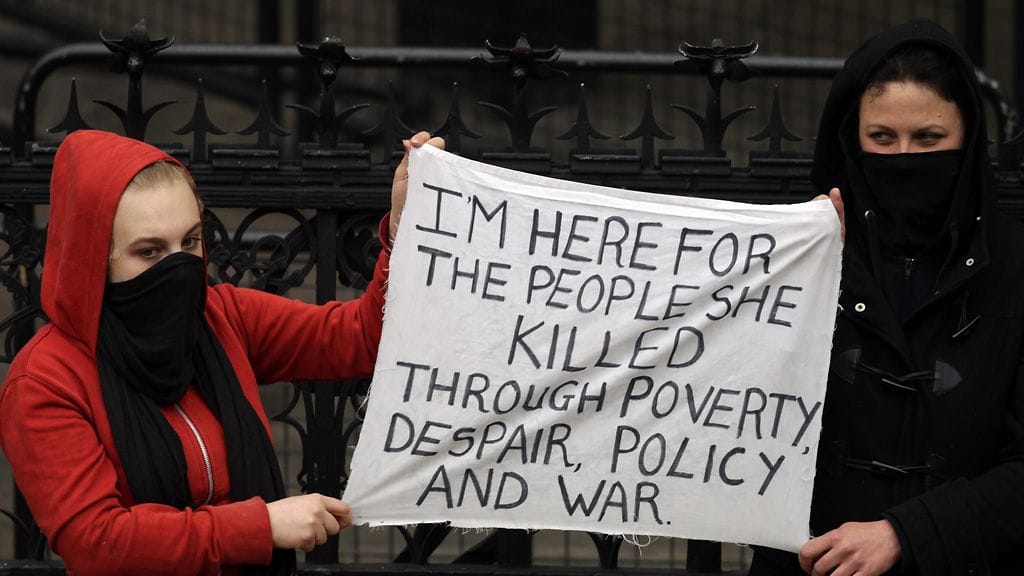 I'M HERE FOR
THE PEOPLE SHE
KILLED
THROUGH POVERTY,
DESPAIR, POLICY,
AND WAR.